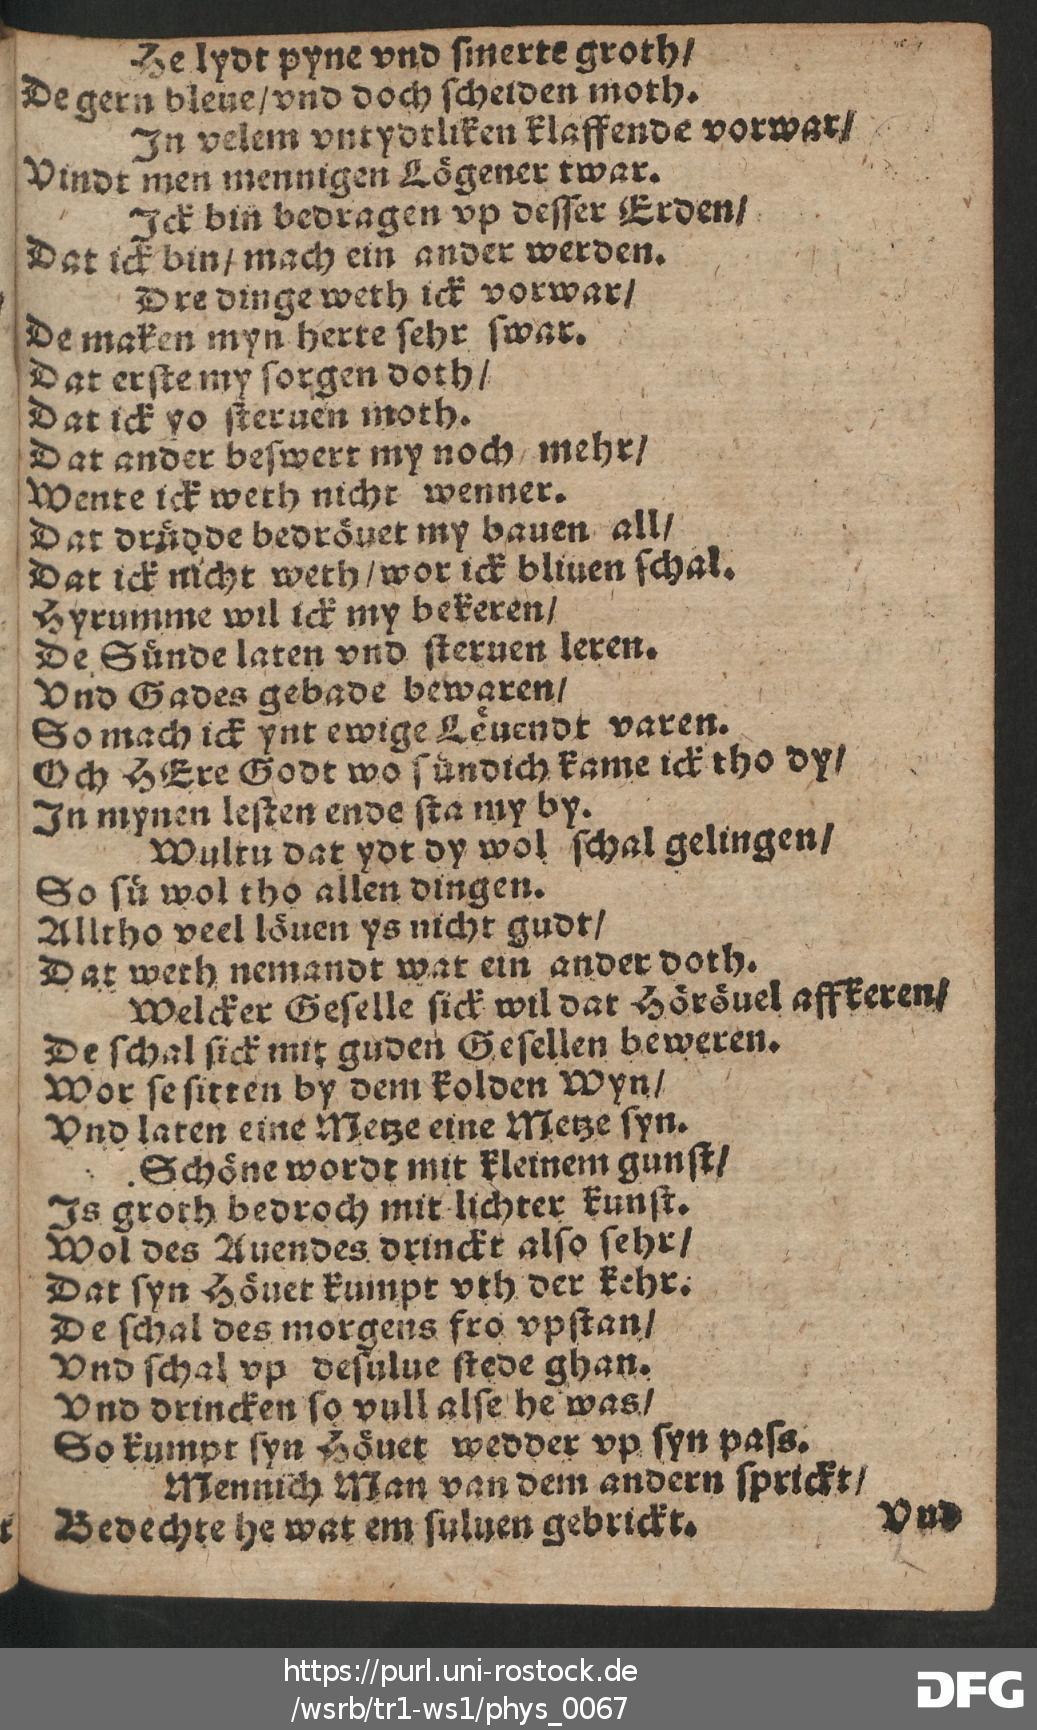 He lydt pyne vnd smerte groth/
De gern bleue/vnd doch scheiden moth.
In velem vntydtliken klaffende vorwar/
Vindt men mennigen Lögener twar.
Ick bin bedragen vp desser Erden/
Dat ick bin/ mach ein ander werden.
Dre dinge weth ick vorwar/
De maken myn herte sehr swar.
Dat erste my sorgen doth/
Dat ick yo steruen moth.
Dat ander beswert my noch mehr/
Wente ick weth nicht wenner.
Dat drüdde bedröuet my bauen all/
Dat ick nicht weth/wor ick bliuen schal.
Hyrumme wil ick my bekeren/
De Sünde laten vnd steruen leren.
Vnd Gades gebade bewaren/
So mach ick ynt ewige Leuendt varen.
Och HEre Godt wo sündich kame ick tho dy/
In mynen lesten ende sta my by.
Wultu dat ydt dy wol schal gelingen/
So sü wol tho allen dingen.
Alltho veel löuen ys nicht gudt/
Dat weth nemandt wat ein ander doth.
Welcker Geselle sick wil dat Höröuel affkeren/
De schal sick mit guden Gesellen beweren.
Wor se sitten by dem kolden Wyn/
Vnd laten eine Metze eine Metze syn.
Schöne wordt mit kleinem gunst/
Is groth bedroch mit lichter kunst.
Wol des Auendes drinckt also sehr/
Dat syn Höuet kumpt vth der kehr.
De schal des morgens fro vpstan/
Vnd schal vp desulue stede ghan.
Vnd drincken so vull alse he was/
So kumpt syn Höuet wedder vp syn pass.
Mennich Man van dem andern sprickt/
Bedechte he wat em suluen gebrickt.
Vnd
https://purl.uni-rostock.de
/wsrb/tr1-ws1/phys_0067
DFG